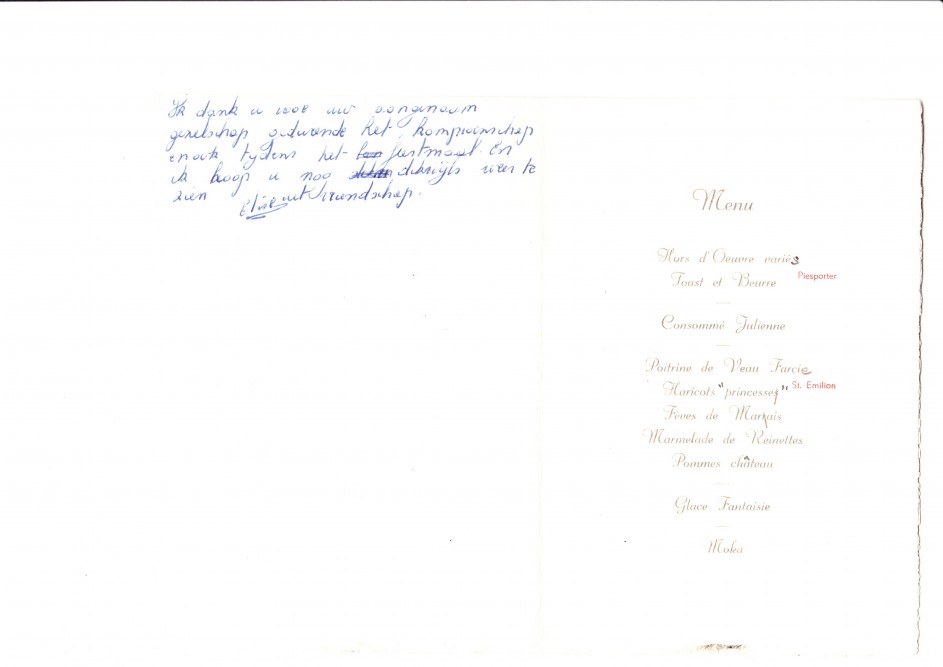 Ik dank u voor uw aangenaam
gezelschap gedurende het kampioenschap
en ook tijdens het feestmaal. En
ik hoop u nog dikwijls weer te
zien
Elise uit vriendschap.
Menu
Hors d'Oeuvre variés
Piesporter
Toast et Beurre
Consommé Julienne
Poitrine de Veau Farcie
Haricots "princesses"
St. Emilion
Fèves de Marais
Marmelade de Reinettes
Pommes château
Glace Fantaisie
Moka